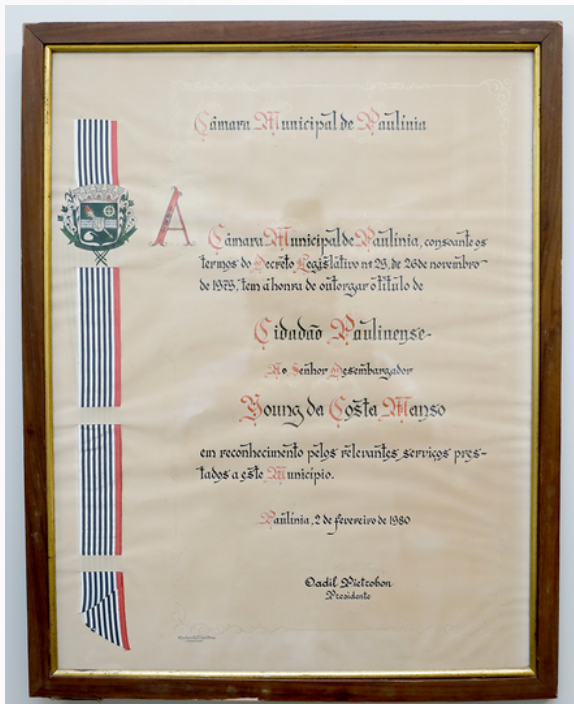 Câmara Municipal de Paulínia
A Câmara Municipal de Paulínia, consoante os
termos do Decreto Legislativo nº 29, de 26 de novembro
de 1979, tem a honra de outorgar o título de
Cidadão Paulinense
Ao Senhor Desembargador
Young da Costa Manso
em reconhecimento pelos relevantes serviços pres-
tados a este Município.
Paulínia, 2 de fevereiro de 1980
Oadil Pietrobon
Presidente